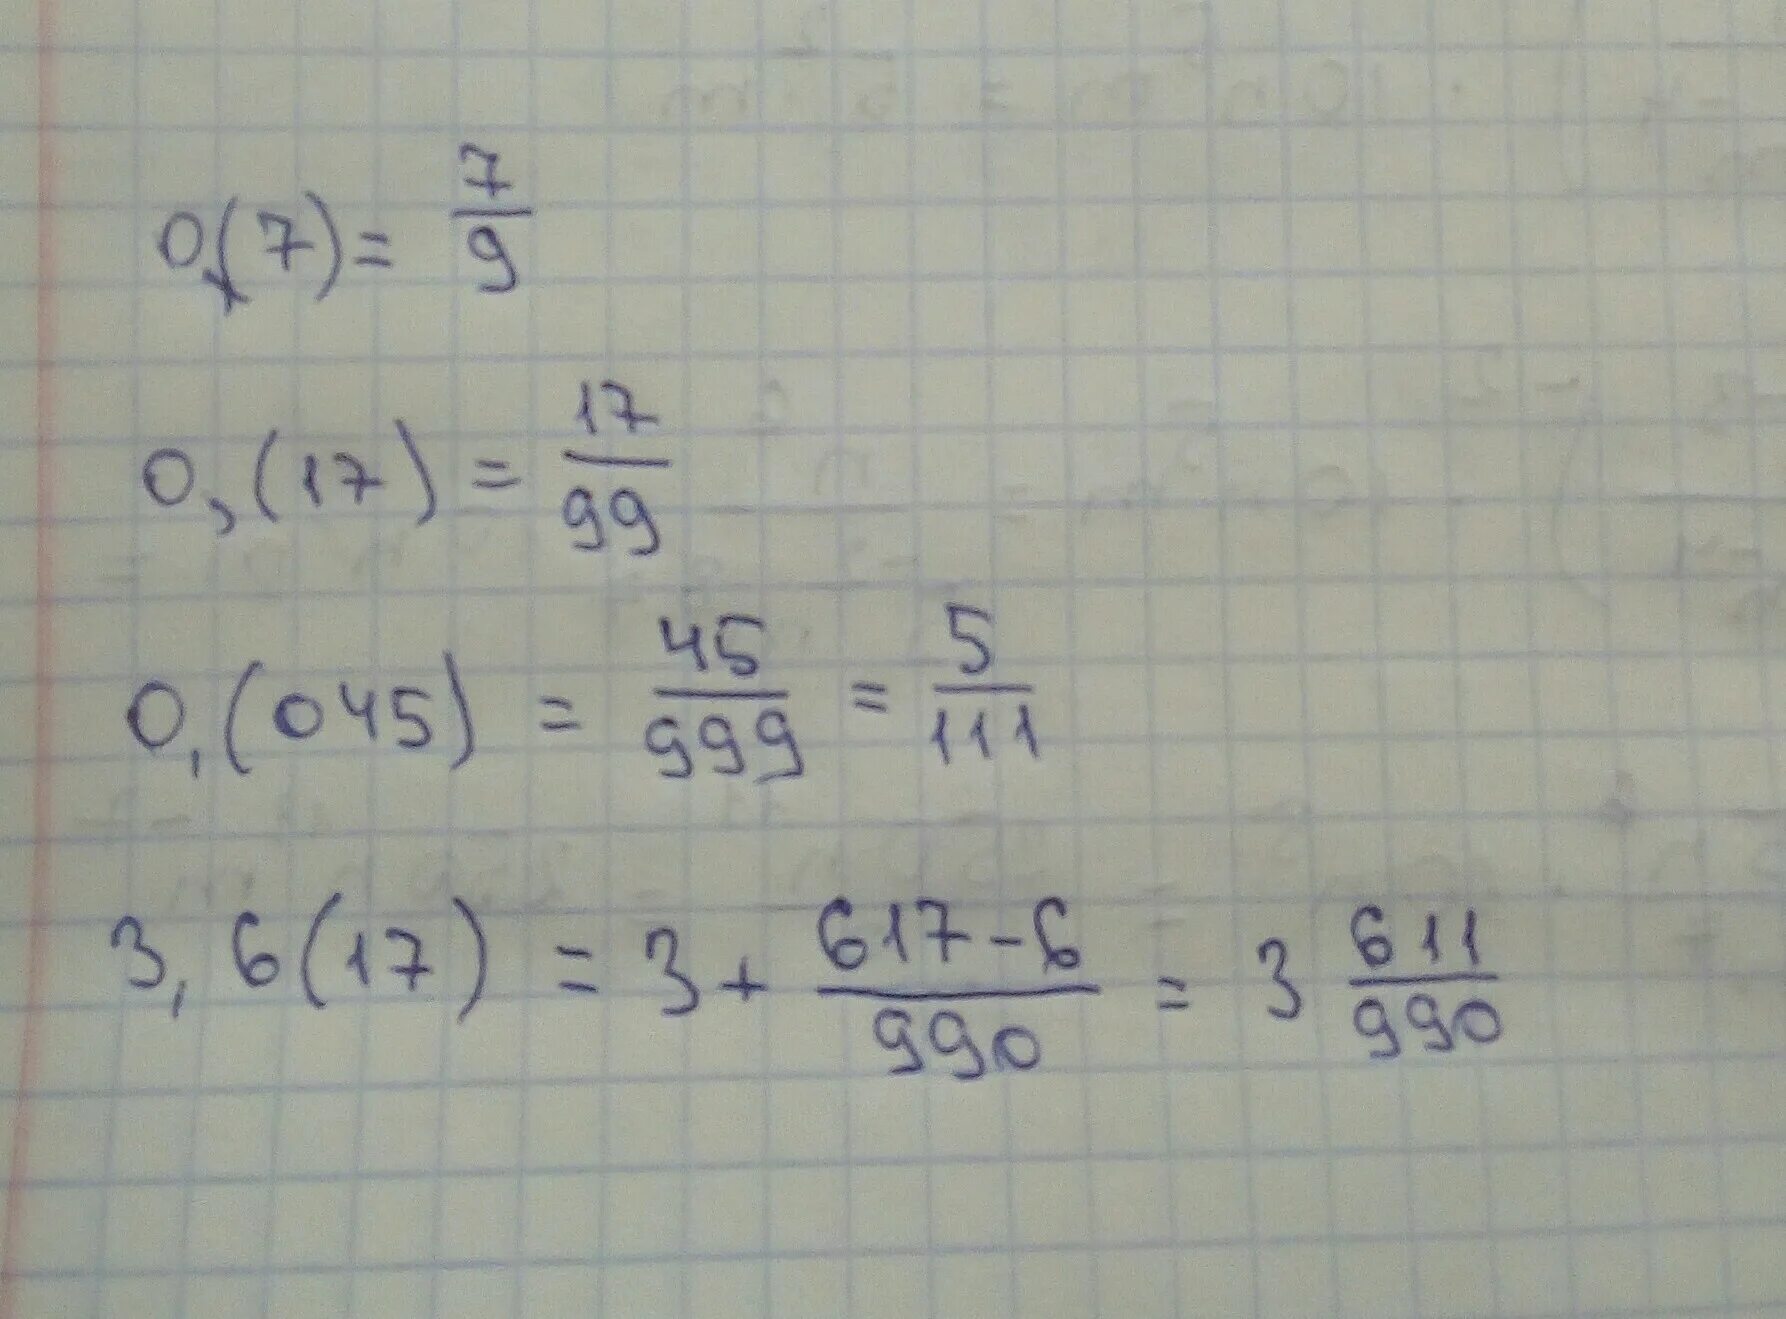 0,(7) = 7/9
0,(17) = 17/99
0,(045) = 45/999 = 5/111
3,6(17) = 3 + 617-6/990 = 3 611/990